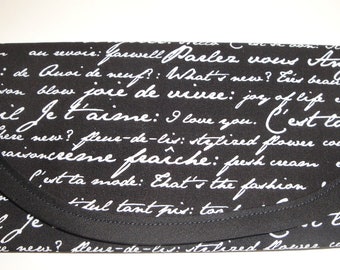 au revoir: farwell Parlez vous
de Quoi de neuf?: What's new? Très beau
blow joie de vivre: joy of life
Je t'aime: I love you. C'est ta
here new? fleur-de-lis: stylized flower
raison crème fraîche: fresh cream
C'est ta mode: That's the fashion
tant pis: too
Je
new? fleur-de-lis: stylized flower